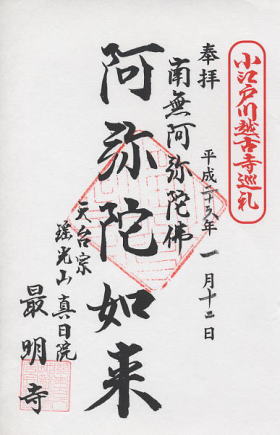 小江戸川越古寺巡礼
奉拝
平成二十九年一月十二日
南無阿弥陀佛
阿弥陀如来
天台宗
瑶光山真日院
最明寺